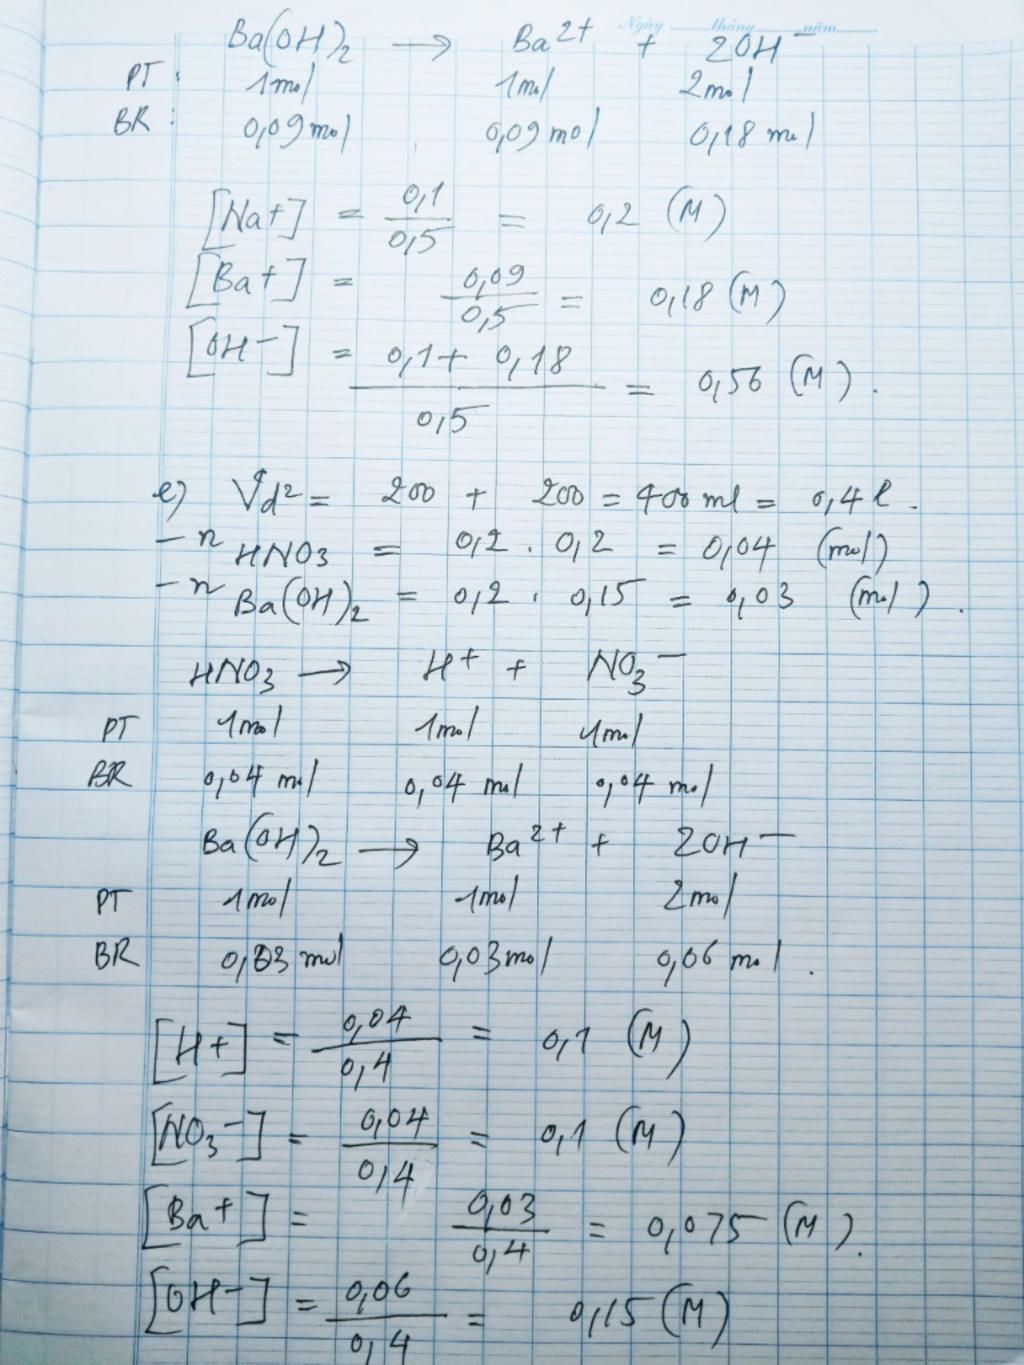 Ngày ........... tháng ........... năm...........
Ba(OH)₂ → Ba²⁺ + 2OH⁻
PT : 1mol 1mol 2mol
BR : 0,09mol 0,09mol 0,18mol
[Na+] = 0,1/0,5 = 0,2 (M)
[Ba+] = 0,09/0,5 = 0,18 (M)
[OH-] = 0,1 + 0,18/0,5 = 0,56 (M).
e) Vd² = 200 + 200 = 400 ml = 0,4 l.
- n HNO₃ = 0,2 . 0,2 = 0,04 (mol)
- n Ba(OH)₂ = 0,2 . 0,15 = 0,03 (mol).
HNO₃ → H⁺ + NO₃⁻
PT 1mol 1mol 1mol
BR 0,04 mol 0,04 mol 0,04 mol
Ba(OH)₂ → Ba²⁺ + 2OH⁻
PT 1mol 1mol 2mol
BR 0,03 mol 0,03mol 0,06 mol.
[H+] = 0,04/0,4 = 0,1 (M)
[NO₃⁻] = 0,04/0,4 = 0,1 (M)
[Ba+] = 0,03/0,4 = 0,075 (M).
[OH-] = 0,06/0,4 = 0,15 (M)